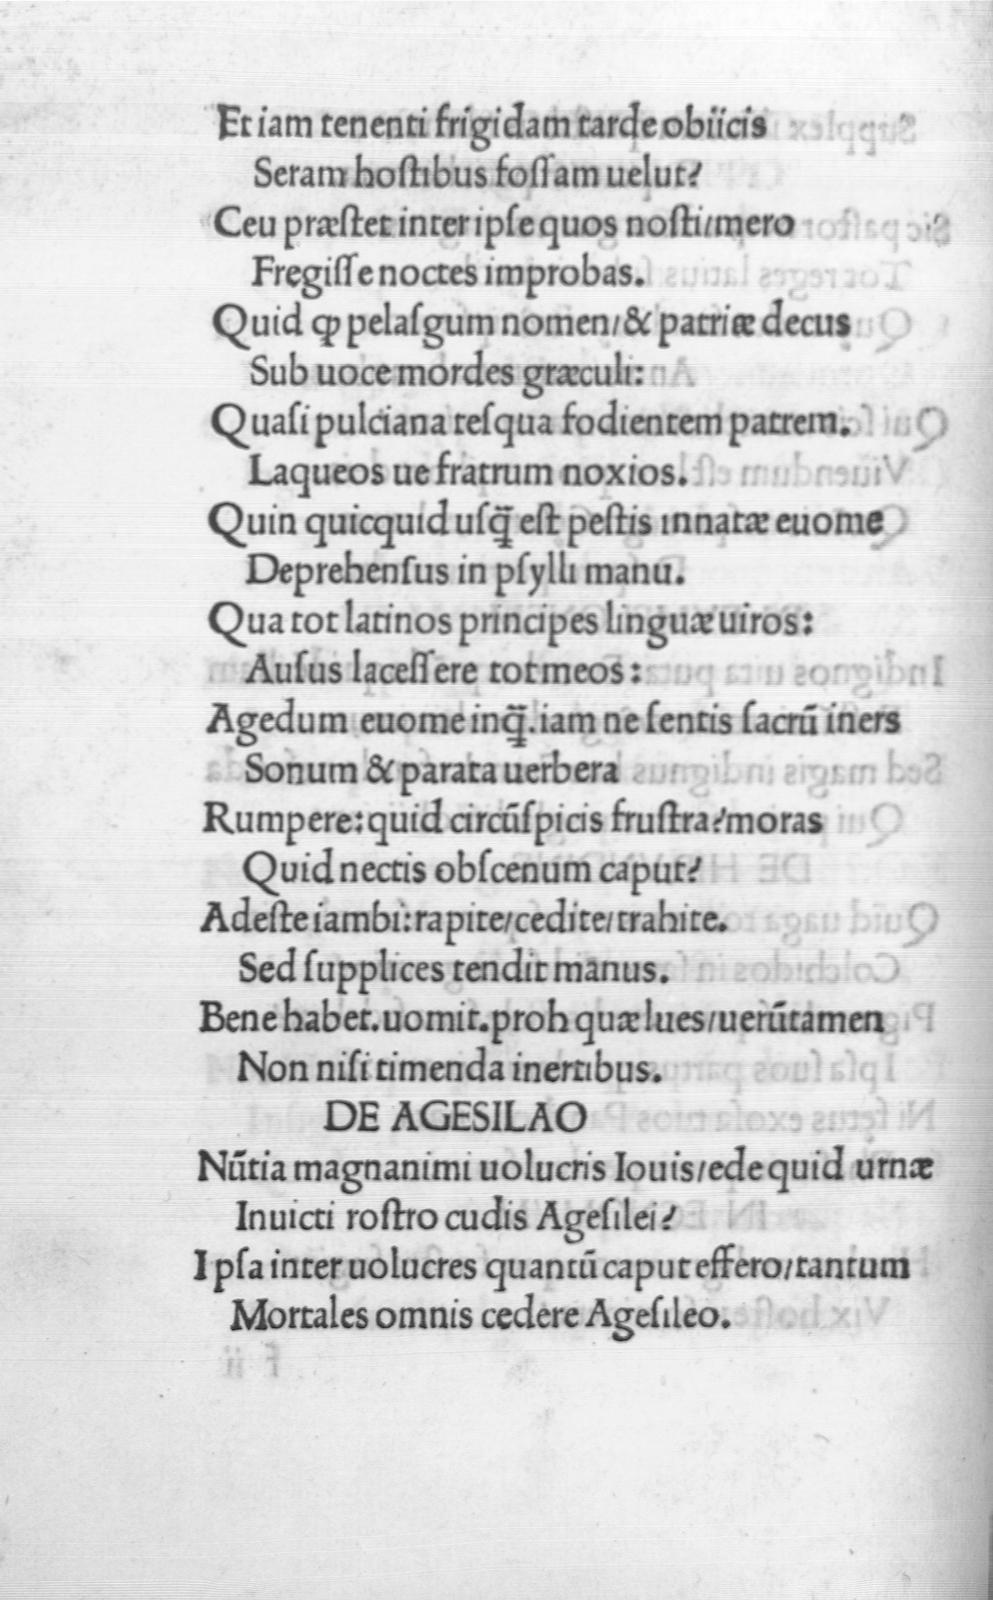 Et iam tenenti frigidam tarde obiicis
Seram hostibus fossam uelut?
Ceu præstet inter ipse quos nosti/mero
Fregisse noctes improbas.
Quid ꝙ pelasgum nomen/& patriæ decus
Sub uoce mordes græculi:
Quasi pulciana tesqua fodientem patrem.
Laqueos ue fratrum noxios.
Quin quicquid usq̃ est pestis innatæ euome
Deprehensus in psylli manu.
Qua tot latinos principes linguæ uiros:
Ausus lacessere tot meos:
Agedum euome inq̃. iam ne sentis sacrũ iners
Sonum & parata uerbera
Rumpere: quid circũspicis frustra? moras
Quid nectis obscenum caput?
Adeste iambi: rapite/cedite/trahite.
Sed supplices tendit manus.
Bene habet. uomit. proh quæ lues/uerũtamen
Non nisi timenda inertibus.
DE AGESILAO
Nũtia magnanimi uolucris Iouis/ede quid urnæ
Inuicti rostro cudis Agesilei?
Ipsa inter uolucres quantũ caput effero/tantum
Mortales omnis cedere Agesileo.